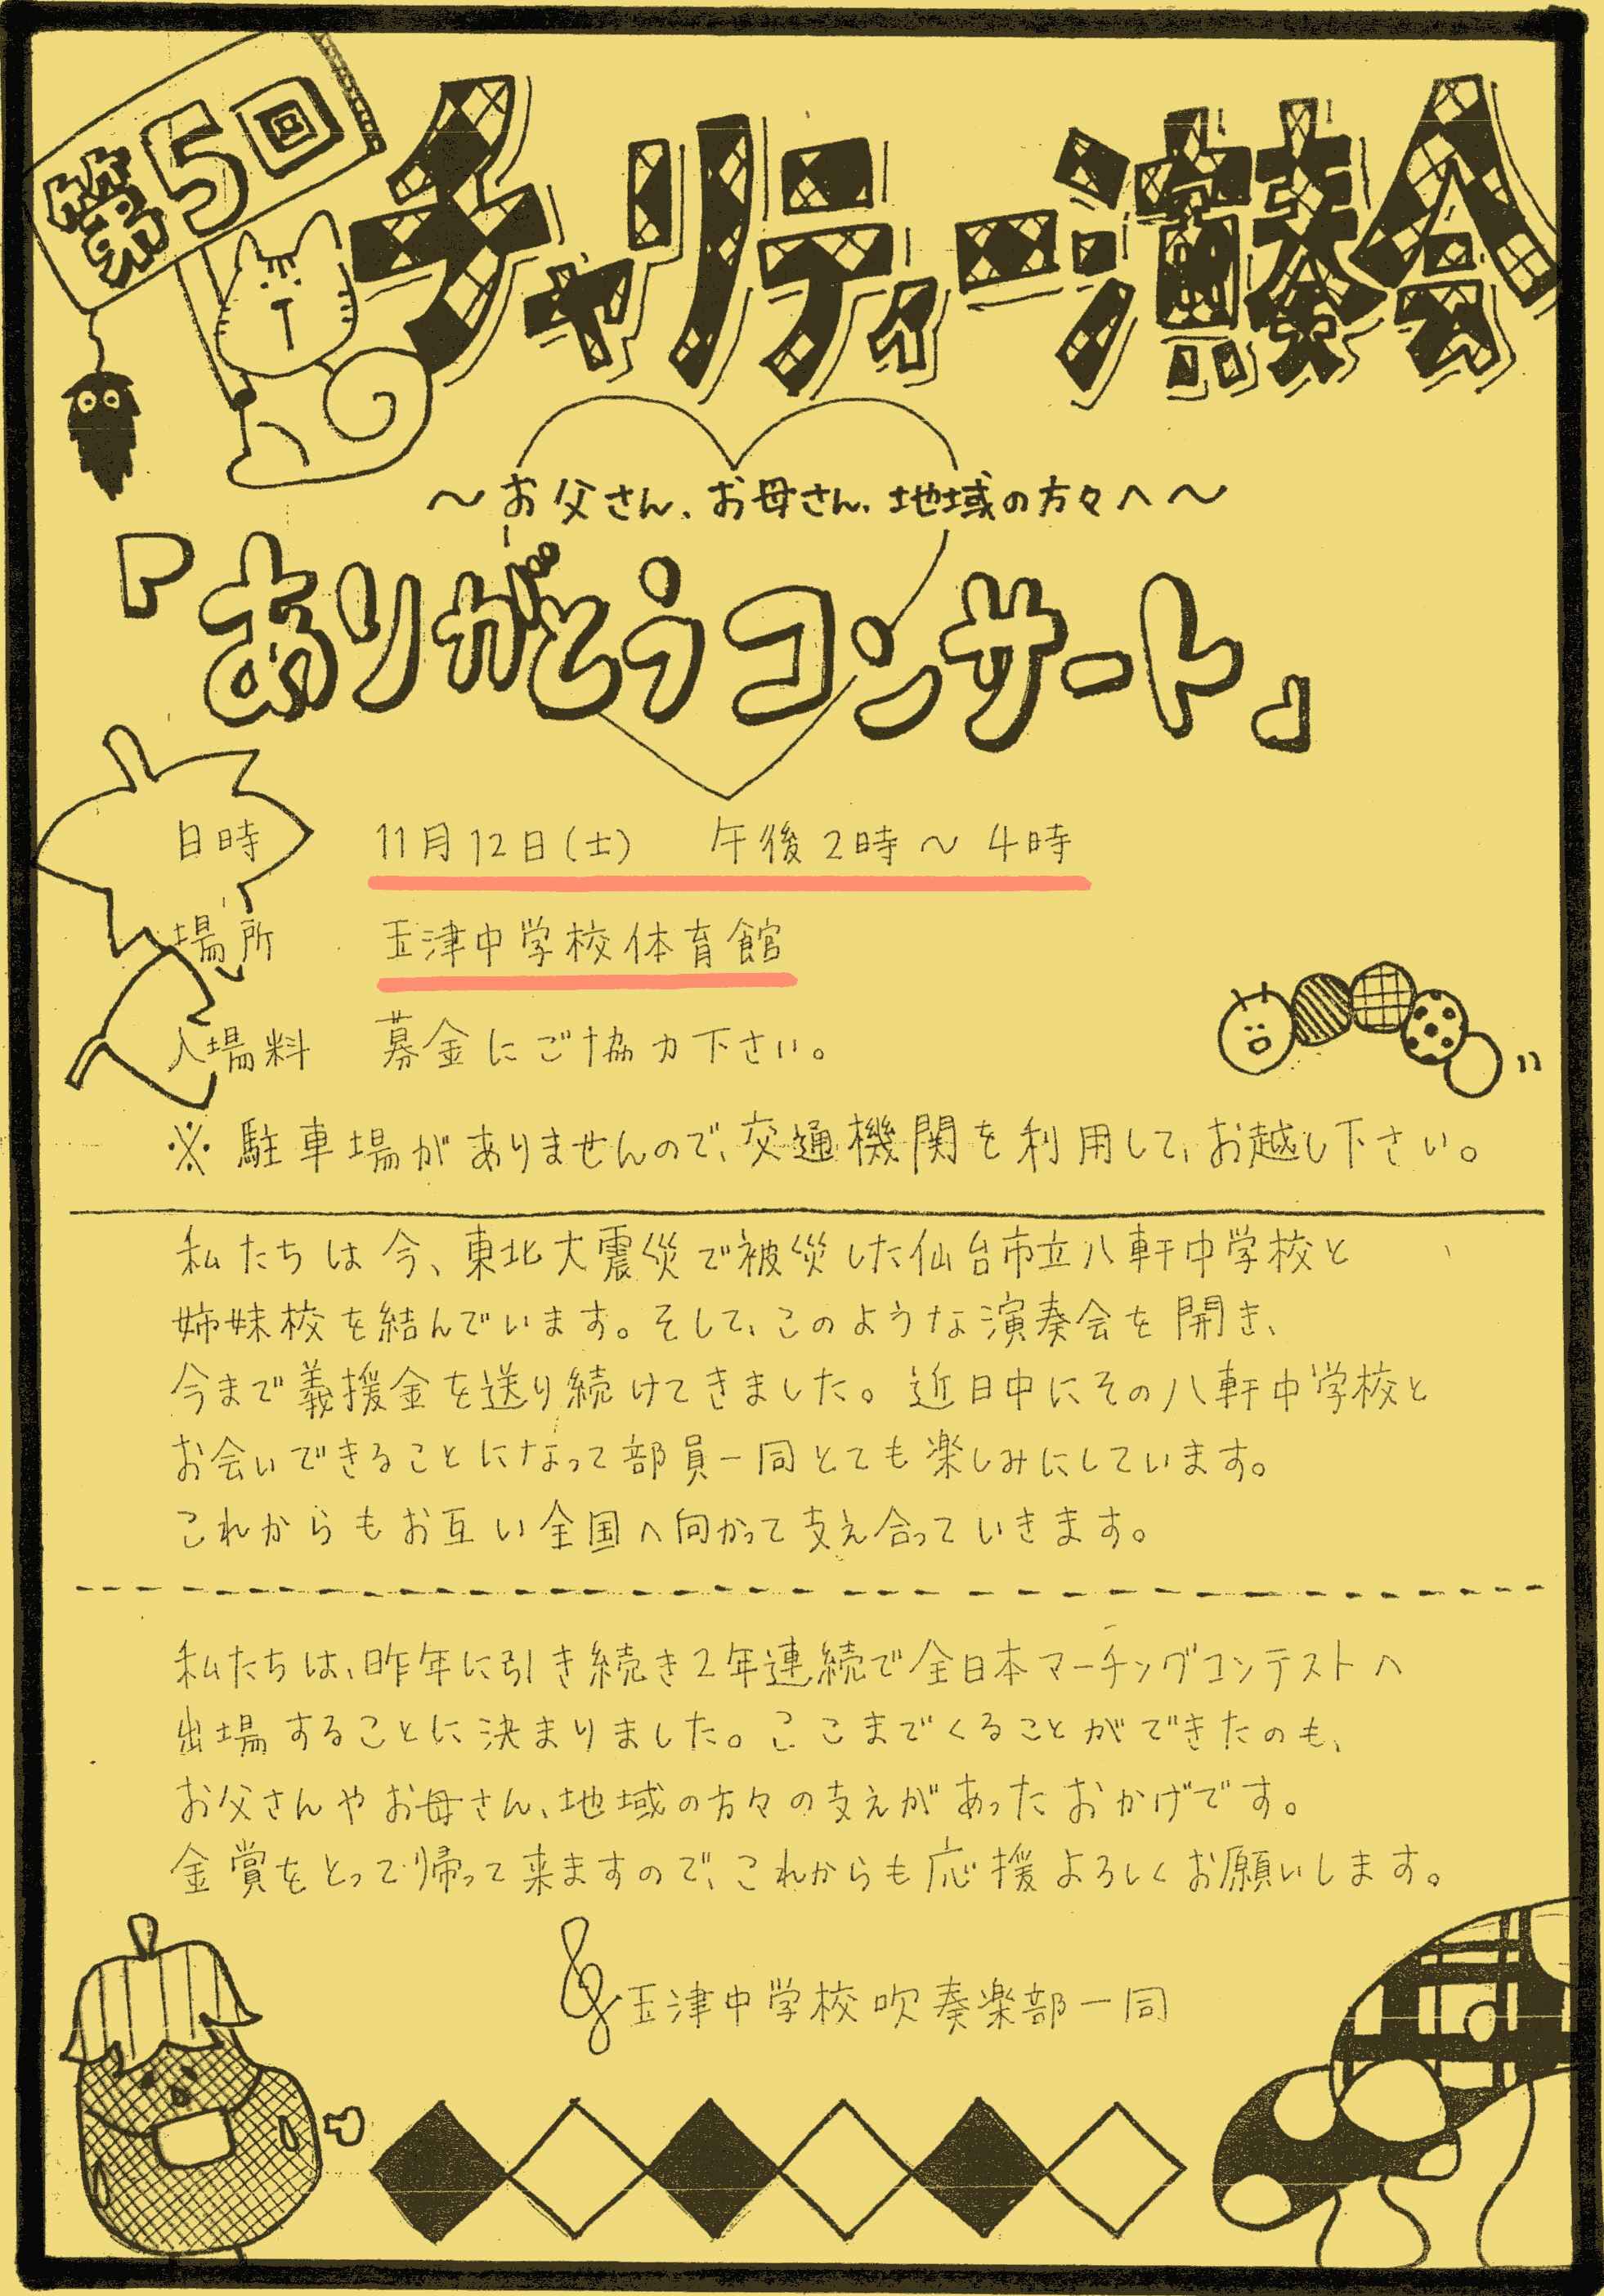 第5回
チャリティー演奏会
～お父さん、お母さん、地域の方々へ～
『ありがとうコンサート』
日時 11月12日(土) 午後2時～4時
場所 玉津中学校体育館
入場料 募金にご協力下さい。
※駐車場がありませんので、交通機関を利用して、お越し下さい。
私たちは今、東北大震災で被災した仙台市立八軒中学校と
姉妹校を結んでいます。そして、このような演奏会を開き、
今まで義援金を送り続けてきました。近日中にその八軒中学校と
お会いできることになって部員一同とても楽しみにしています。
これからもお互い全国へ向かって支え合っていきます。
私たちは、昨年に引き続き2年連続で全日本マーチングコンテストへ
出場することに決まりました。ここまでくることができたのも、
お父さんやお母さん、地域の方々の支えがあったおかげです。
金賞をとって帰って来ますので、これからも応援よろしくお願いします。
玉津中学校吹奏楽部一同